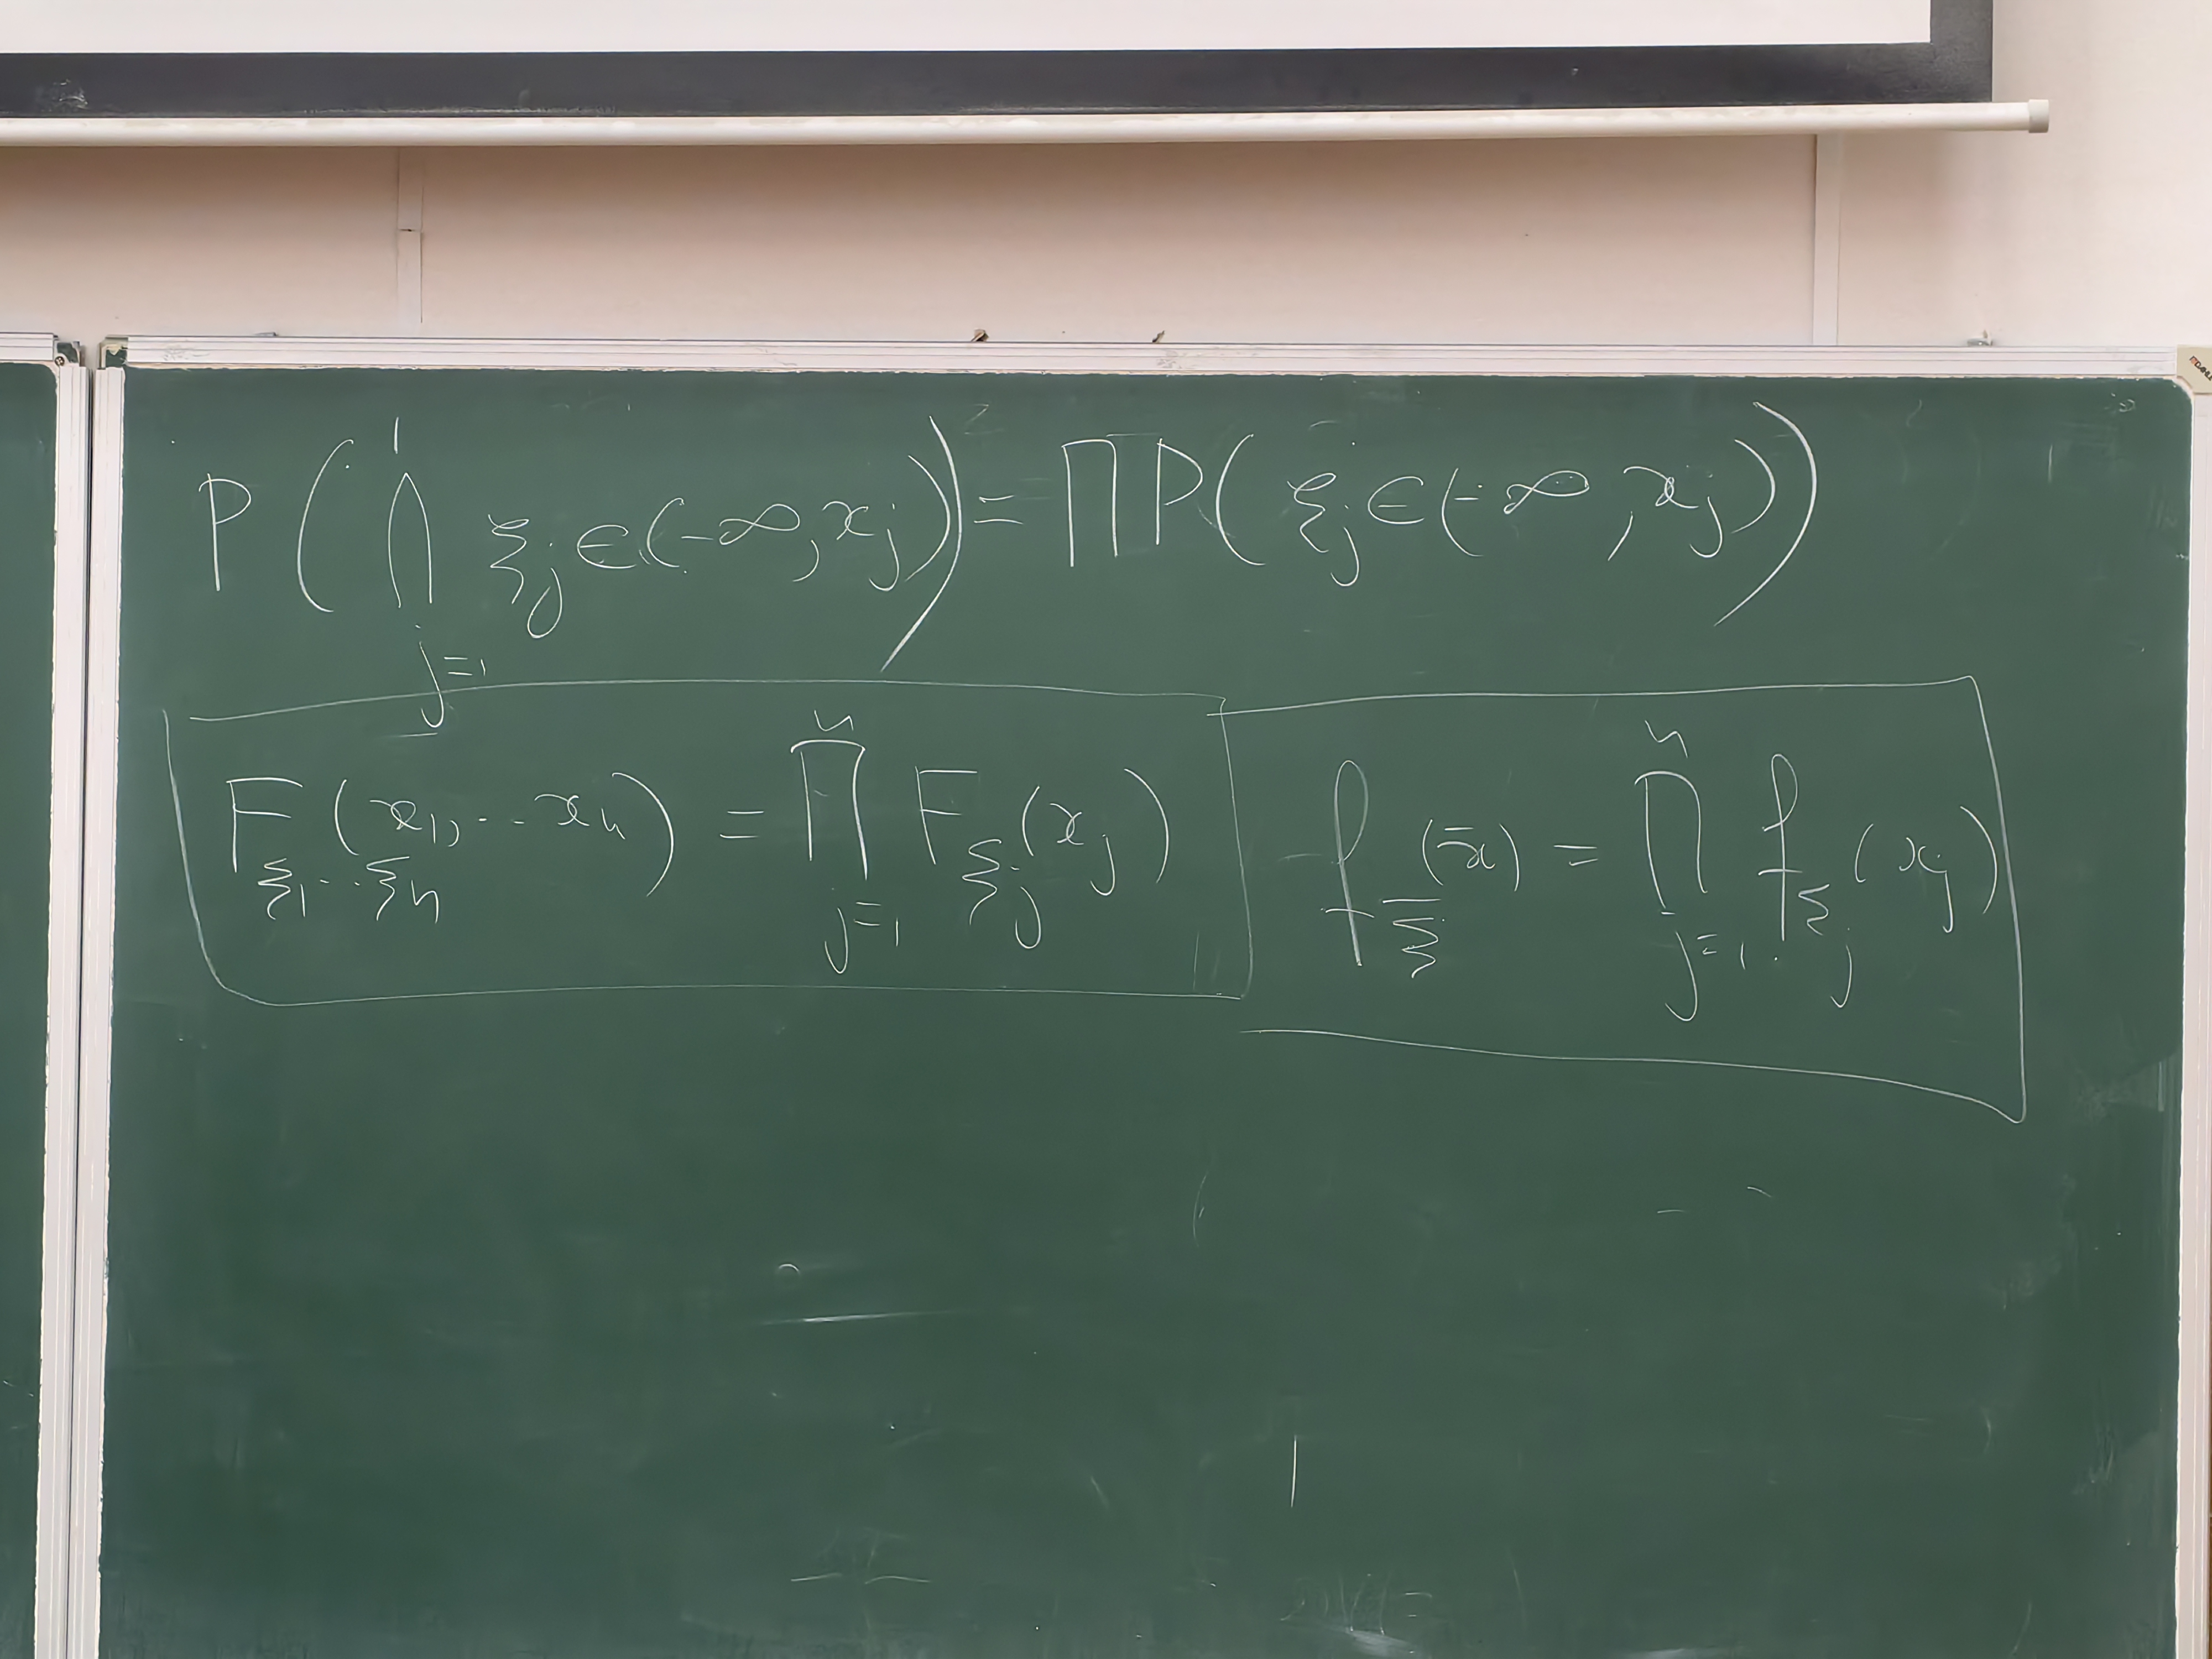 P(⋂_{j=1} ξ_j ∈ (-∞, x_j)) = ∏ P(ξ_j ∈ (-∞, x_j))
F_{ξ_1...ξ_n}(x_1, ... x_n) = ∏_{j=1}^{n} F_{ξ_j}(x_j)
f_{ξ̄}(x̄) = ∏_{j=1}^{n} f_{ξ_j}(x_j)